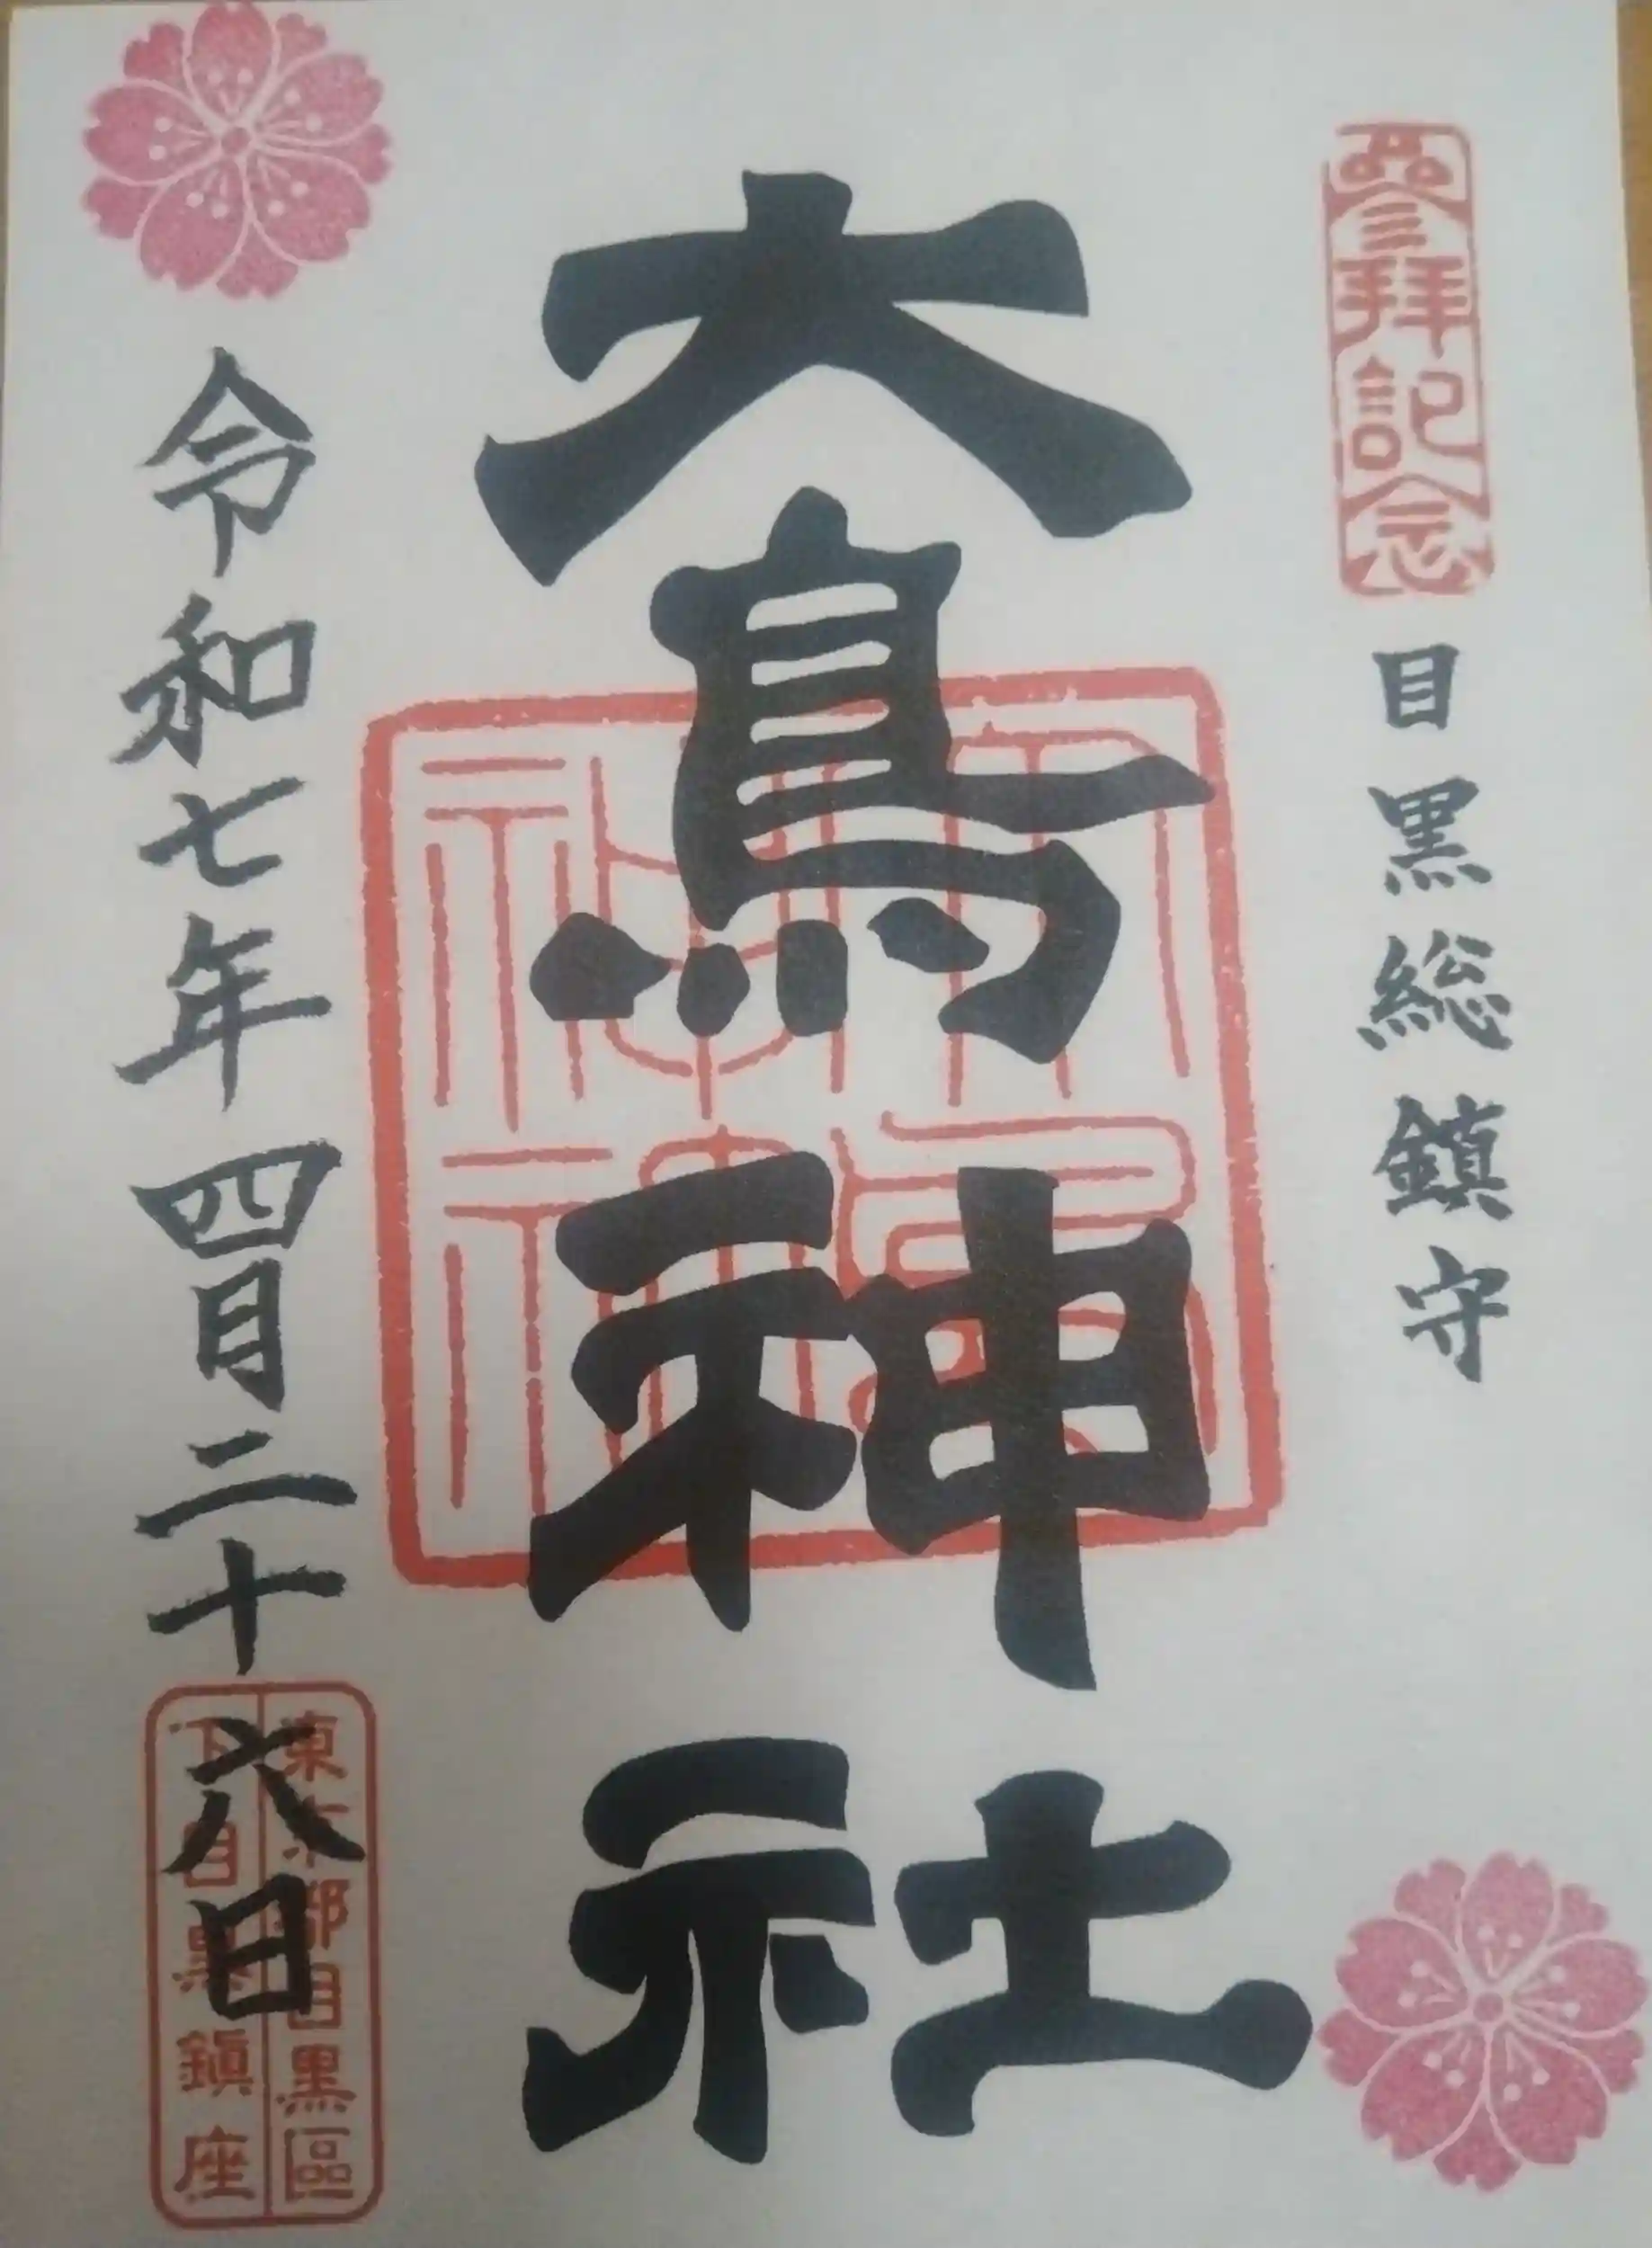 參拜記念
目黒総鎮守
大鳥神社
令和七年四月二十六日
東京都目黒區
下目黒鎮座